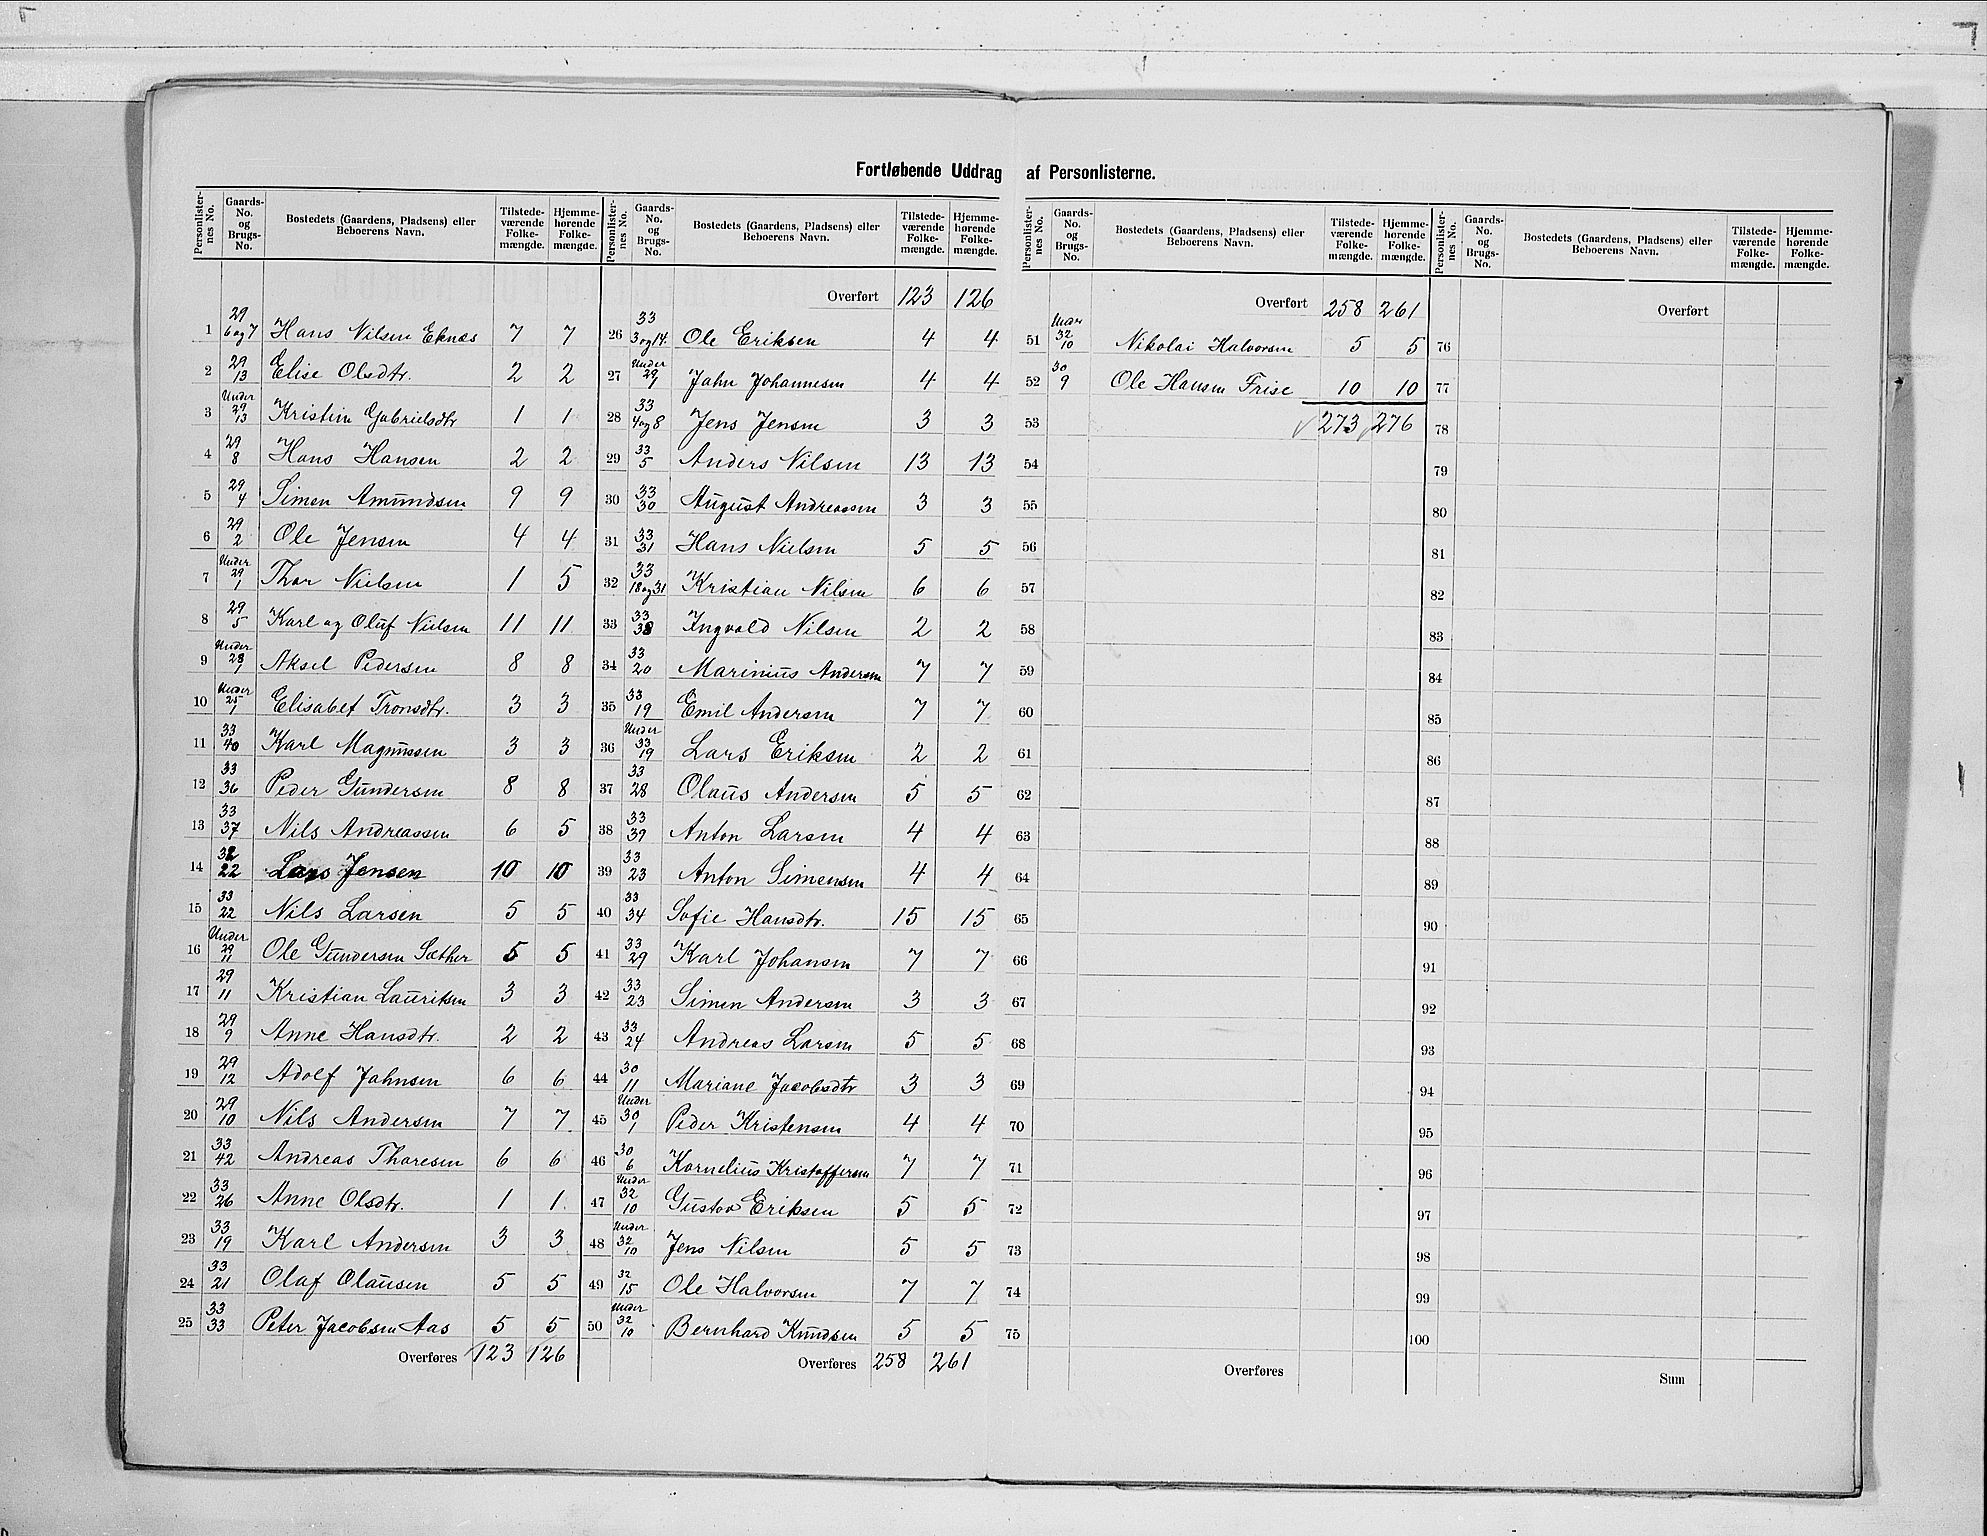 Fortløbende Uddrag af Personlisterne.
Personlister-nes No. | Gaards-No. og Brugs-No. | Bostedets (Gaardens, Pladsens) eller Beboerens Navn. | Tilstede-værende Folke-mængde. | Hjemme-hørende Folke-mængde.
1 29 6 og 7 Hans Nilsen Eknæs 7 7
2 29 13 Elise Olsdtr. 2 2
3 Under 29 13 Kristin Gabrielsdtr 1 1
4 29 8 Hans Hansen 2 2
5 29 4 Simen Amundsen 9 9
6 29 2 Ole Jensen 4 4
7 Under 29 1 Thor Nielsen 1 5
8 29 5 Karl og Oluf Nielsen 11 11
9 Under 28 1 Aksel Pedersen 8 8
10 Under 25 1 Elisabet Tronsdtr. 3 3
11 33 40 Karl Magnussen 3 3
12 33 36 Peder Gundersen 8 8
13 33 37 Nils Andreassen 6 5
14 32 22 Lars Jensen 10 10
15 33 22 Nils Larsen 5 5
16 Under 29 11 Ole Gundersen Sæther 5 5
17 29 11 Kristian Lauritsen 3 3
18 29 9 Anne Hansdtr. 2 2
19 29 12 Adolf Jahnsen 6 6
20 29 10 Nils Andersen 7 7
21 33 42 Andreas Thoresen 6 6
22 33 26 Anne Olsdtr. 1 1
23 33 19 Karl Andersen 3 3
24 33 21 Olaf Olausen 5 5
25 33 33 Peter Jacobsen Aas 5 5
Overføres 123 126
Personlister-nes No. | Gaards-No. og Brugs-No. | Bostedets (Gaardens, Pladsens) eller Beboerens Navn. | Tilstede-værende Folke-mængde. | Hjemme-hørende Folke-mængde.
Overført 123 126
26 33 3 og 14. Ole Eriksen 4 4
27 Under 29 1 Jahn Johannesen 4 4
28 33 4 og 8 Jens Jensen 3 3
29 33 5 Anders Nilsen 13 13
30 33 30 August Andreassen 3 3
31 33 31 Hans Nielsen 5 5
32 33 18 og 31 Kristian Nilsen 6 6
33 33 38 Ingvald Nilsen 2 2
34 33 20 Marinius Andersen 7 7
35 33 19 Emil Andersen 7 7
36 Under 33 19 Lars Eriksen 2 2
37 33 28 Olaus Andersen 5 5
38 33 39 Anton Larsen 4 4
39 33 23 Anton Simensen 4 4
40 33 34 Sofie Hansdtr. 15 15
41 33 29 Karl Johansen 7 7
42 33 23 Simen Andersen 3 3
43 33 24 Andreas Larsen 5 5
44 30 11 Mariane Jacobsdtr 3 3
45 Under 30 1 Peder Kristensen 4 4
46 30 6 Kornelius Kristoffersen 7 7
47 Under 32 10 Gustav Eriksen 5 5
48 Under 32 10 Jens Nilsen 5 5
49 32 15 Ole Halvorsen 7 7
50 Under 32 10 Bernhard Knudsen 5 5
Overføres 258 261
Personlister-nes No. | Gaards-No. og Brugs-No. | Bostedets (Gaardens, Pladsens) eller Beboerens Navn. | Tilstede-værende Folke-mængde. | Hjemme-hørende Folke-mængde.
Overført 258 261
51 Under 32 10 Nikolai Halvorsen 5 5
52 30 9 Ole Hansen Frise 10 10
53 273 276
54
55
56
57
58
59
60
61
62
63
64
65
66
67
68
69
70
71
72
73
74
75
Overføres
Personlister-nes No. | Gaards-No. og Brugs-No. | Bostedets (Gaardens, Pladsens) eller Beboerens Navn. | Tilstede-værende Folke-mængde. | Hjemme-hørende Folke-mængde.
Overført
76
77
78
79
80
81
82
83
84
85
86
87
88
89
90
91
92
93
94
95
96
97
98
99
100
Sum